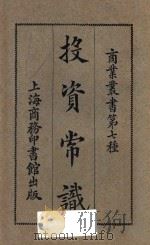 商業叢書第七種
投資常識
上海商務印書館出版